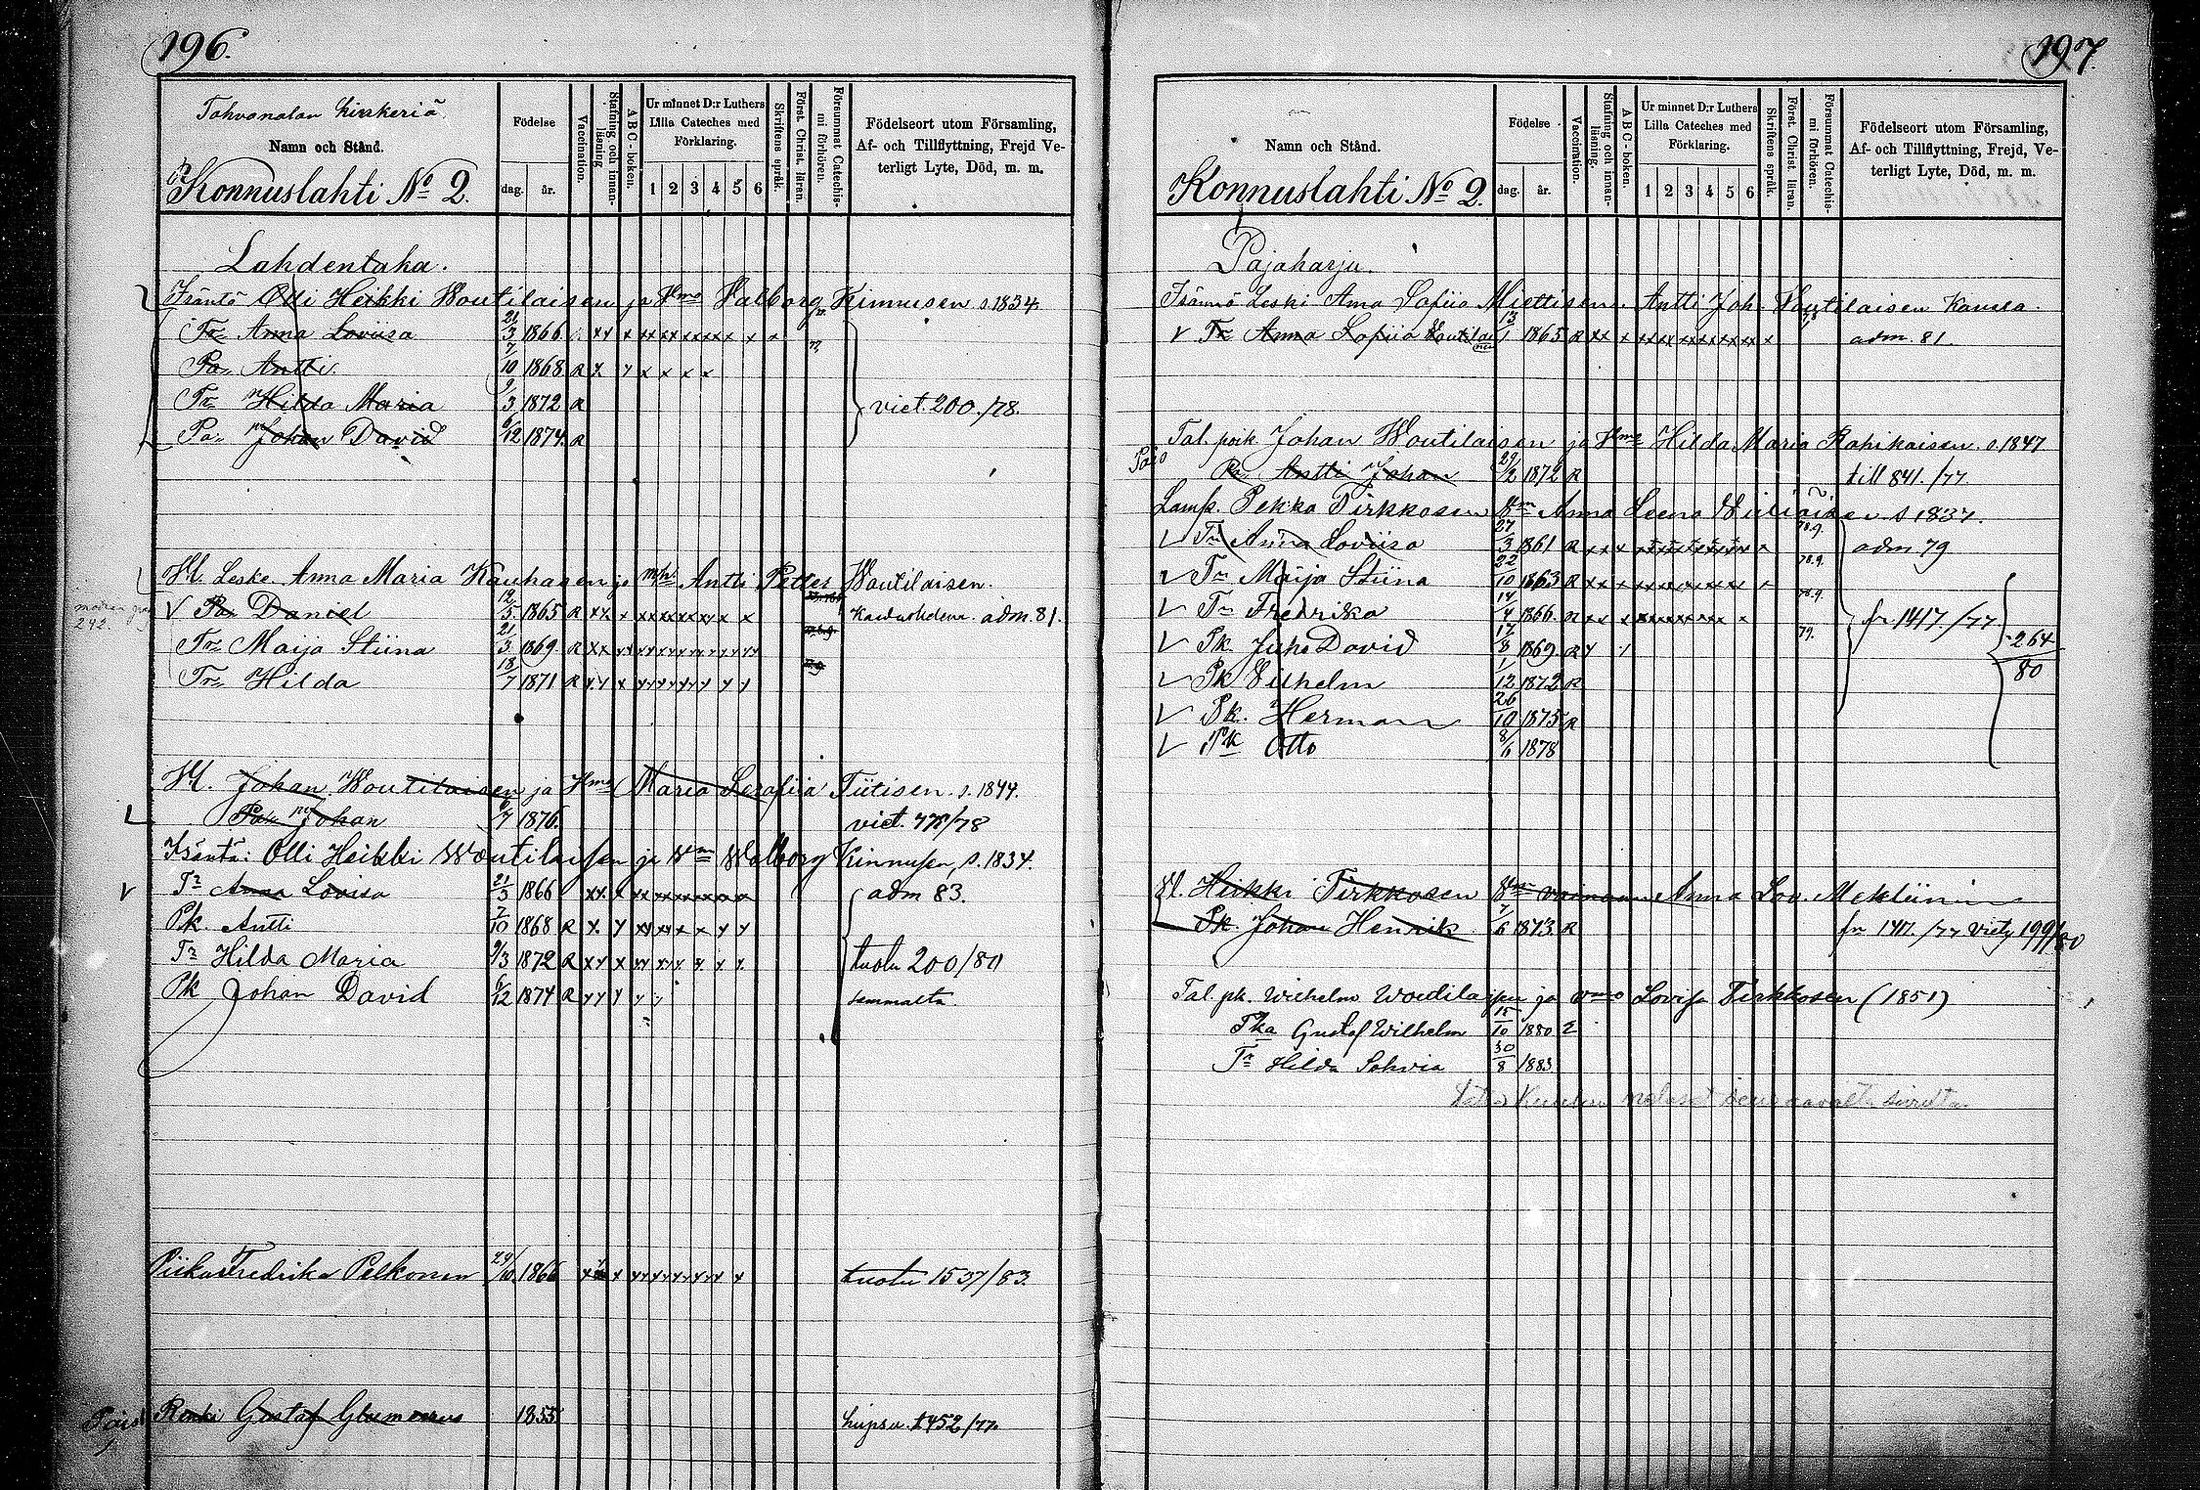 196.
Tahvonalan kinkeriä
Namn och Stånd.
Konnuslahti No 2.
Födelse
dag. år.
Vaccination.
Stafning och innan-läsning
ABC-boken.
Ur minnet D:r Luthers Lilla Cateches med Förklaring.
1 2 3 4 5 6
Skriftens språk.
Först. Christ. läran.
Försummat Catechis-mi förhören.
Födelseort utom Församling, Af- och Tillflyttning, Frejd Ve-terligt Lyte, Död, m. m.
Lahdentaka.
Isäntä Olli Heikki Woutilaisen ja Hmo Valborg Kinnusen s. 1834
Tr. Anna Loviisa 21/3 1866 xx x xx xx xx xx x x
Pa. Antti 7/10 1868 R x y x x x x
Tr. Hilda Maria 9/3 1872 R viet. 200./78.
Pa. Johan David 6/12 1874. R
Hl. Leske Anna Maria Kauhasen ja Antti Petter Woutilaisen.
V Pa. Daniel 12/5 1865 R xx x xx xx xx x x adm. 81.
Tr. Maija Stiina 21/3 1869 R xx
Tr. Hilda 18/7 1871 R
242.
Hl. Johan Woutilaisen ja Hmo Maria Serafiia Tiitisen s. 1844.
Pa. Johan 6/7 1876. viet. 778/78
Isäntä: Olli Heikki Woutilaisen ja Vm Walborg Kinnusen, s. 1834.
V Tr Anna Lovisa 21/3 1866 adm 83.
Pk. Antti 7/10 1868 R
Tr Hilda Maria 9/3 1872 R tuotu 200/80
Pk Johan David 6/12 1874 R sammalta
Piika Fredrika Pelkonen 29/10 1866 tuotu 1537/83.
Pois Renki Gustaf Glumerus 1855 1452/77.
197.
Namn och Stånd.
Konnuslahti No 2.
Födelse
dag. år.
Vaccination.
Stafning och innan-läsning.
ABC-boken.
Ur minnet D:r Luthers Lilla Cateches med Förklaring.
1 2 3 4 5 6
Skriftens språk.
Först. Christ. läran.
Försummat Catechis-mi förhören.
Födelseort utom Församling, Af- och Tillflyttning, Frejd, Ve-terligt Lyte, Död, m. m.
Pajaharju.
Isännö Leski Anna Sofiia Miettisen. Antti Joh. Voutilaisen kanssa.
V Tr Anna Sofiia Woutilainen 13/1 1865 R xx x adm. 81.
Tal. poik Johan Woutilaisen ja Hmo Hilda Maria Rahikaisen. s. 1847
Pois Pa. Antti Johan 29/2 1872 R till 841./77
Lamp. Pekka Tirkkosen Vm Anna Leena s 1837.
V Tr Anna Loviisa 27/3 1861 R 78.9. adm 79
V Tr Maija Stiina 22/10 1863 R 78.9.
V Tr Fredrika 14/4 1866. R 78.9. fr 1417./77
V Pk. Juho David 17/3 1869. R 79. 264/80
V Pk Vilhelm 1/12 1872 R
V Pk. Herman 26/10 1875 R
V Pk Otto 8/6 1878
Hl. Heikki Tirkkosen Vm vainaan Anna Lov.
Pk. Johan Henrik 7/6 1873. R fr 1417./77 viety 199/80
Tal. pk. Wilhelm Woutilaisen ja Vmo Lovisa Tirkkosen (1851)
Pka Gustaf Wilhelm 15/10 1880
Tr Hilda Sohvia 30/8 1883